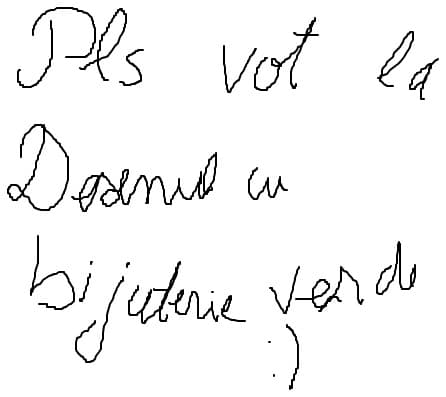 Pls vot la
Desenul cu
bijuterie verde
:)